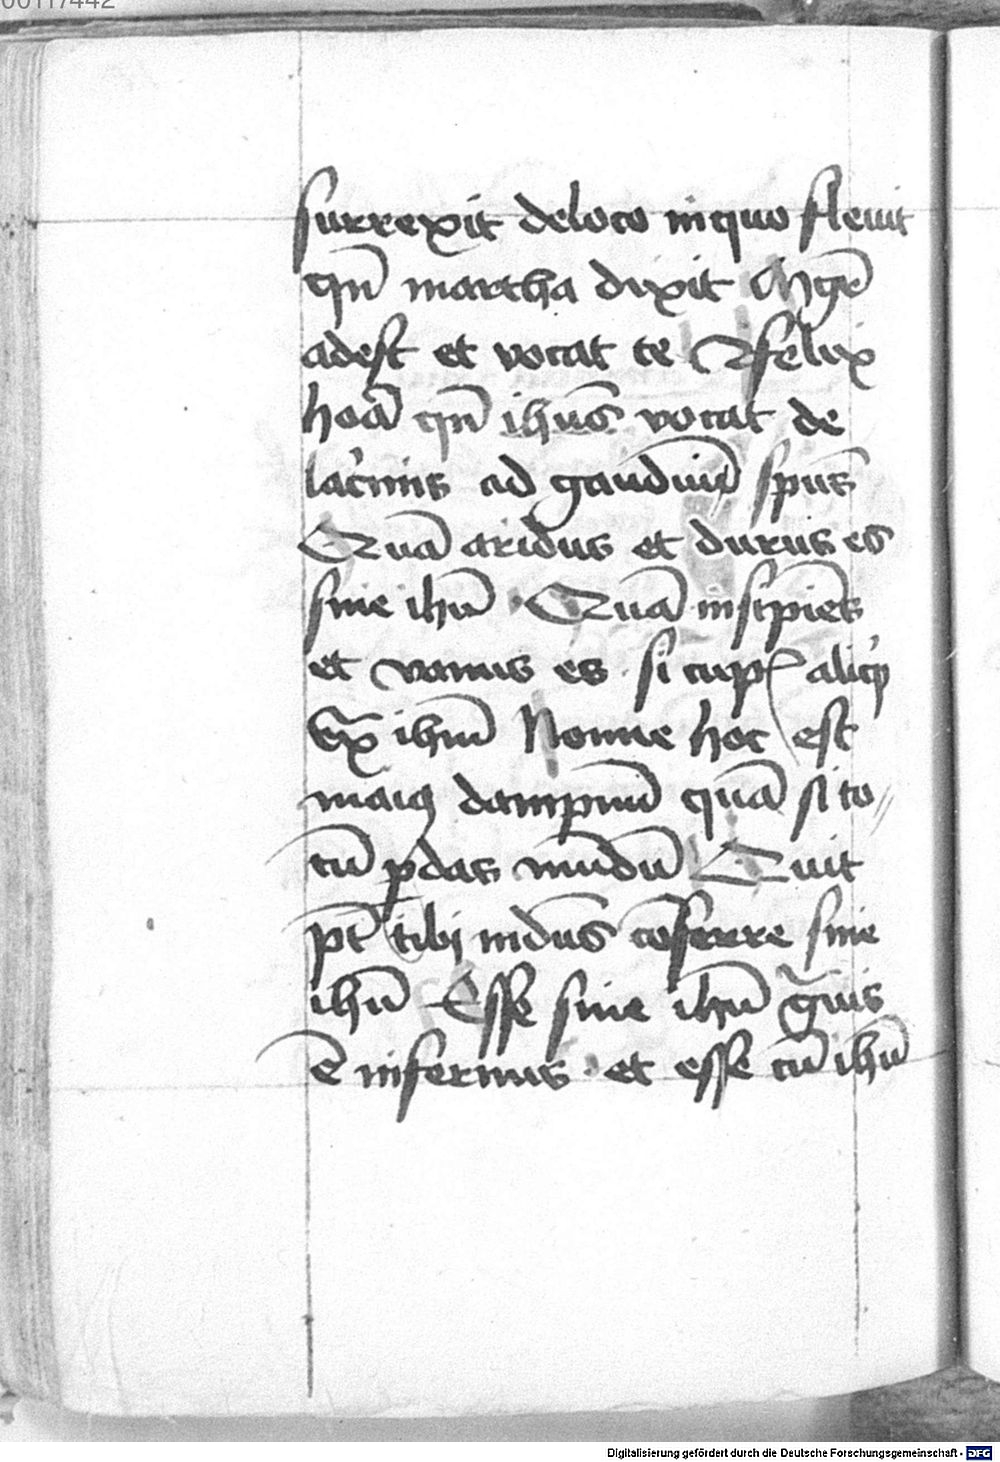 00117442
surrexit de loco in quo flevit
qn̄ martha dixit Mgr̄
adest et vocat te O felix
hoā qn̄ ihūs vocat de
lac̓mis ad gaudiū sp̄us
Quā aridus et durus es
sine ihū Quā insipiēs
et vanus es si cupis aliq̓
ex̄ ihm̄ Nonne hoc est
maiꝰ dampnū quā si to
tū ꝑdas mūdū Quit
pt̄ tibi mdūs cōferre sine
ihū Esse sine ihū gͣuis
ē infernus · et esse cū ihū
Digitalisierung gefördert durch die Deutsche Forschungsgemeinschaft - DFG